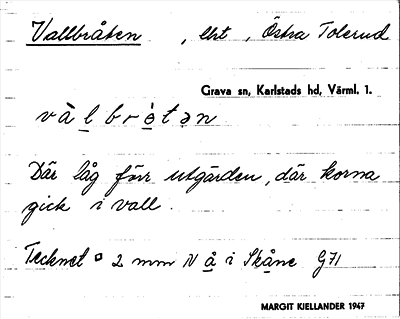 Vallbråten , lht , Östra Tolerud
Grava sn, Karlstads hd, Värml. 1.
và l b r ò t ə n
Där låg förr utgården, där korna
gick i vall.
Tecknet ° 2 mm N å i Skåne G71
MARGIT KJELLANDER 1947